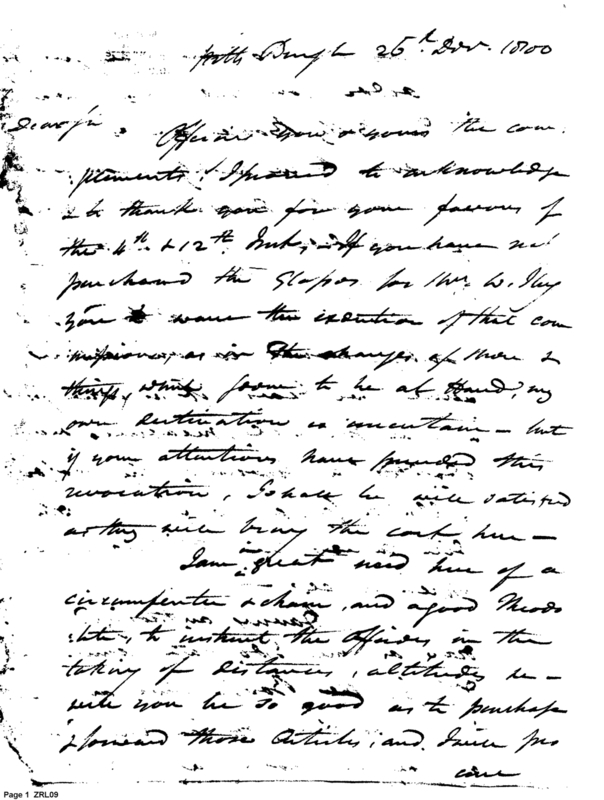 Pittsburgh 26th Decr. 1800
Dear Sir,
Offering you & yours the com
pliments I proceed to acknowledge
& to thank you for your favours of
the 4th & 12th Inst, If you have not
purchased the Glasses for Mr. W.
you wave the execution of that com
mission, as in the changes of Men &
things which seem to be at Hand, my
own destination is uncertain – but
if your attentions have preceded this
revocation, I shall be well satisfied
as they will bring the cost here –
I am in great need here of a
circumferenter & chain, and a good Theodo
lite, to instruct the Officers in the
taking of distances, altitudes &c –
will you be so good as to purchase
& forward those Articles, and I will pro
cure
Page 1 ZRL09